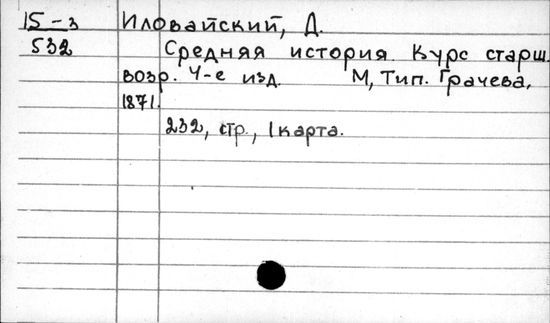 15-3 Иловайский, Д.
532 Средняя история. Курс старш.
возр. 4-е изд. М, Тип. Грачева,
1871.
232, стр., 1 карта.